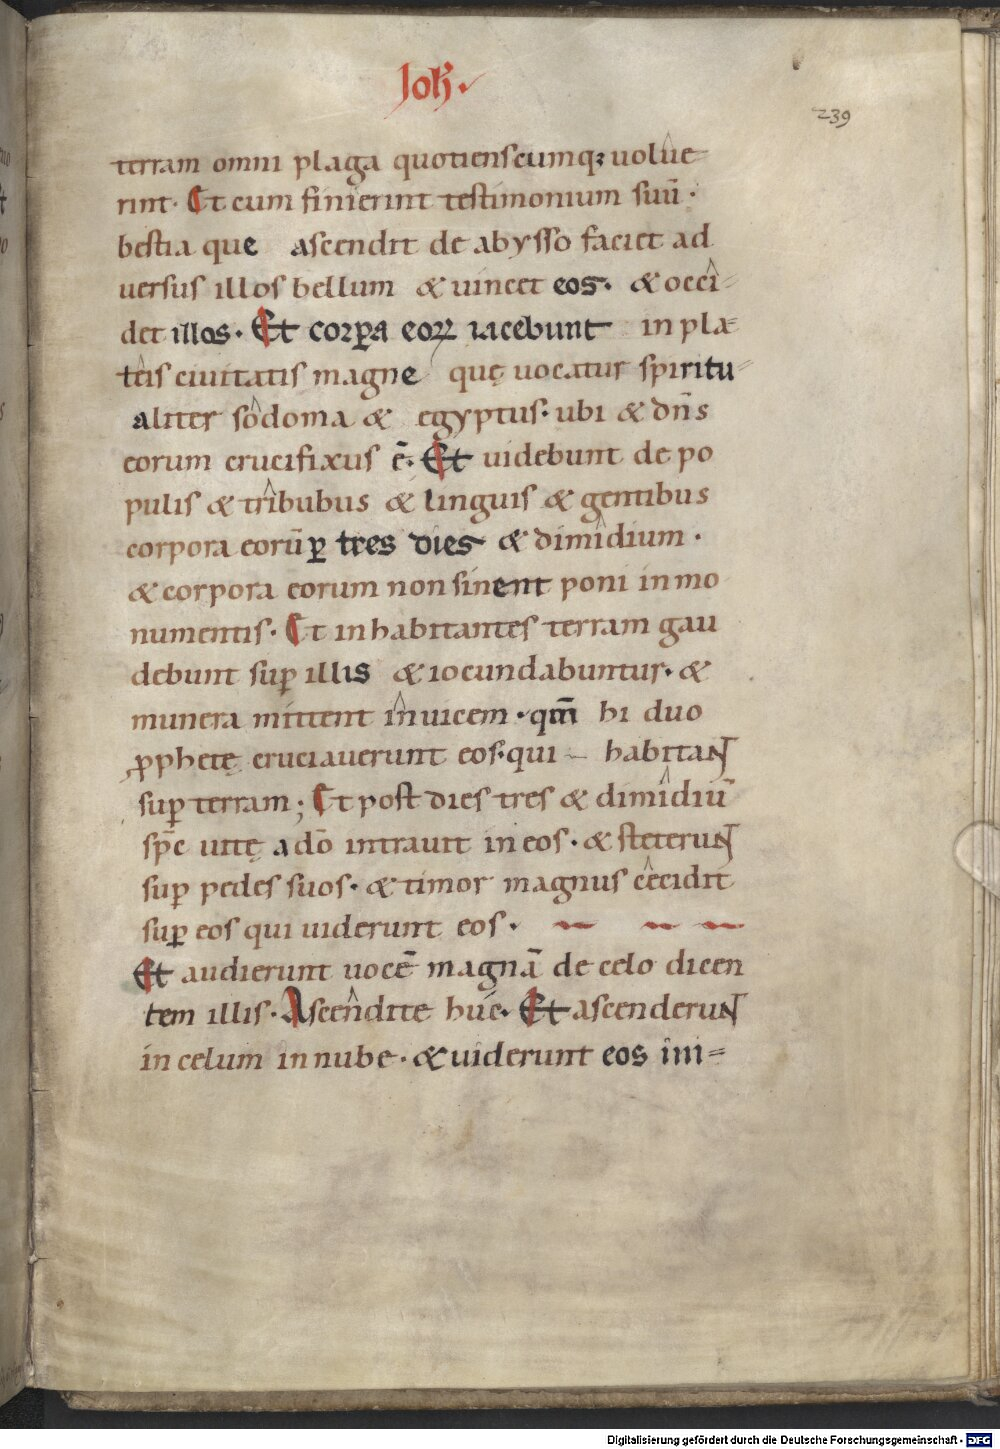 Joħ.
239
terram omni plaga quotienscumqꝫ uolue
rint. Et cum finierint testimonium suū.
bestia que ascendit de abysso faciet ad
uersus illos bellum & uincet eos. & occi-
det illos. Et corꝑa eoꝝ iacebunt in pla-
teis ciuitatis magne quę uocatur spiritu-
aliter sodoma & egyptus. ubi & dn̄s
eorum crucifixus ē. Et uidebunt de po
pulis & tribubus & linguis & gentibus
corpora eorū ꝑ tres dies & dimidium.
& corpora eorum non sinent poni in mo
numentis. Et inhabitantes terram gau
debunt suꝑ illis & iocundabuntur. &
munera mittent inuicem. qm̄ hi duo
ꝓphetę cruciauerunt eos. qui habitaNT
suꝑ terram; Et post dies tres & dimidiū
spc̄ uitę a dō intrauit in eos. & steteruNT
suꝑ pedes suos. & timor magnus cecidit
suꝑ eos qui uiderunt eos.
Et audierunt uocē magnā de celo dicen
tem illis. Ascendite huc. Et ascenderuNT
in celum in nube. & uiderunt eos ini-
Digitalisierung gefördert durch die Deutsche Forschungsgemeinschaft - DFG